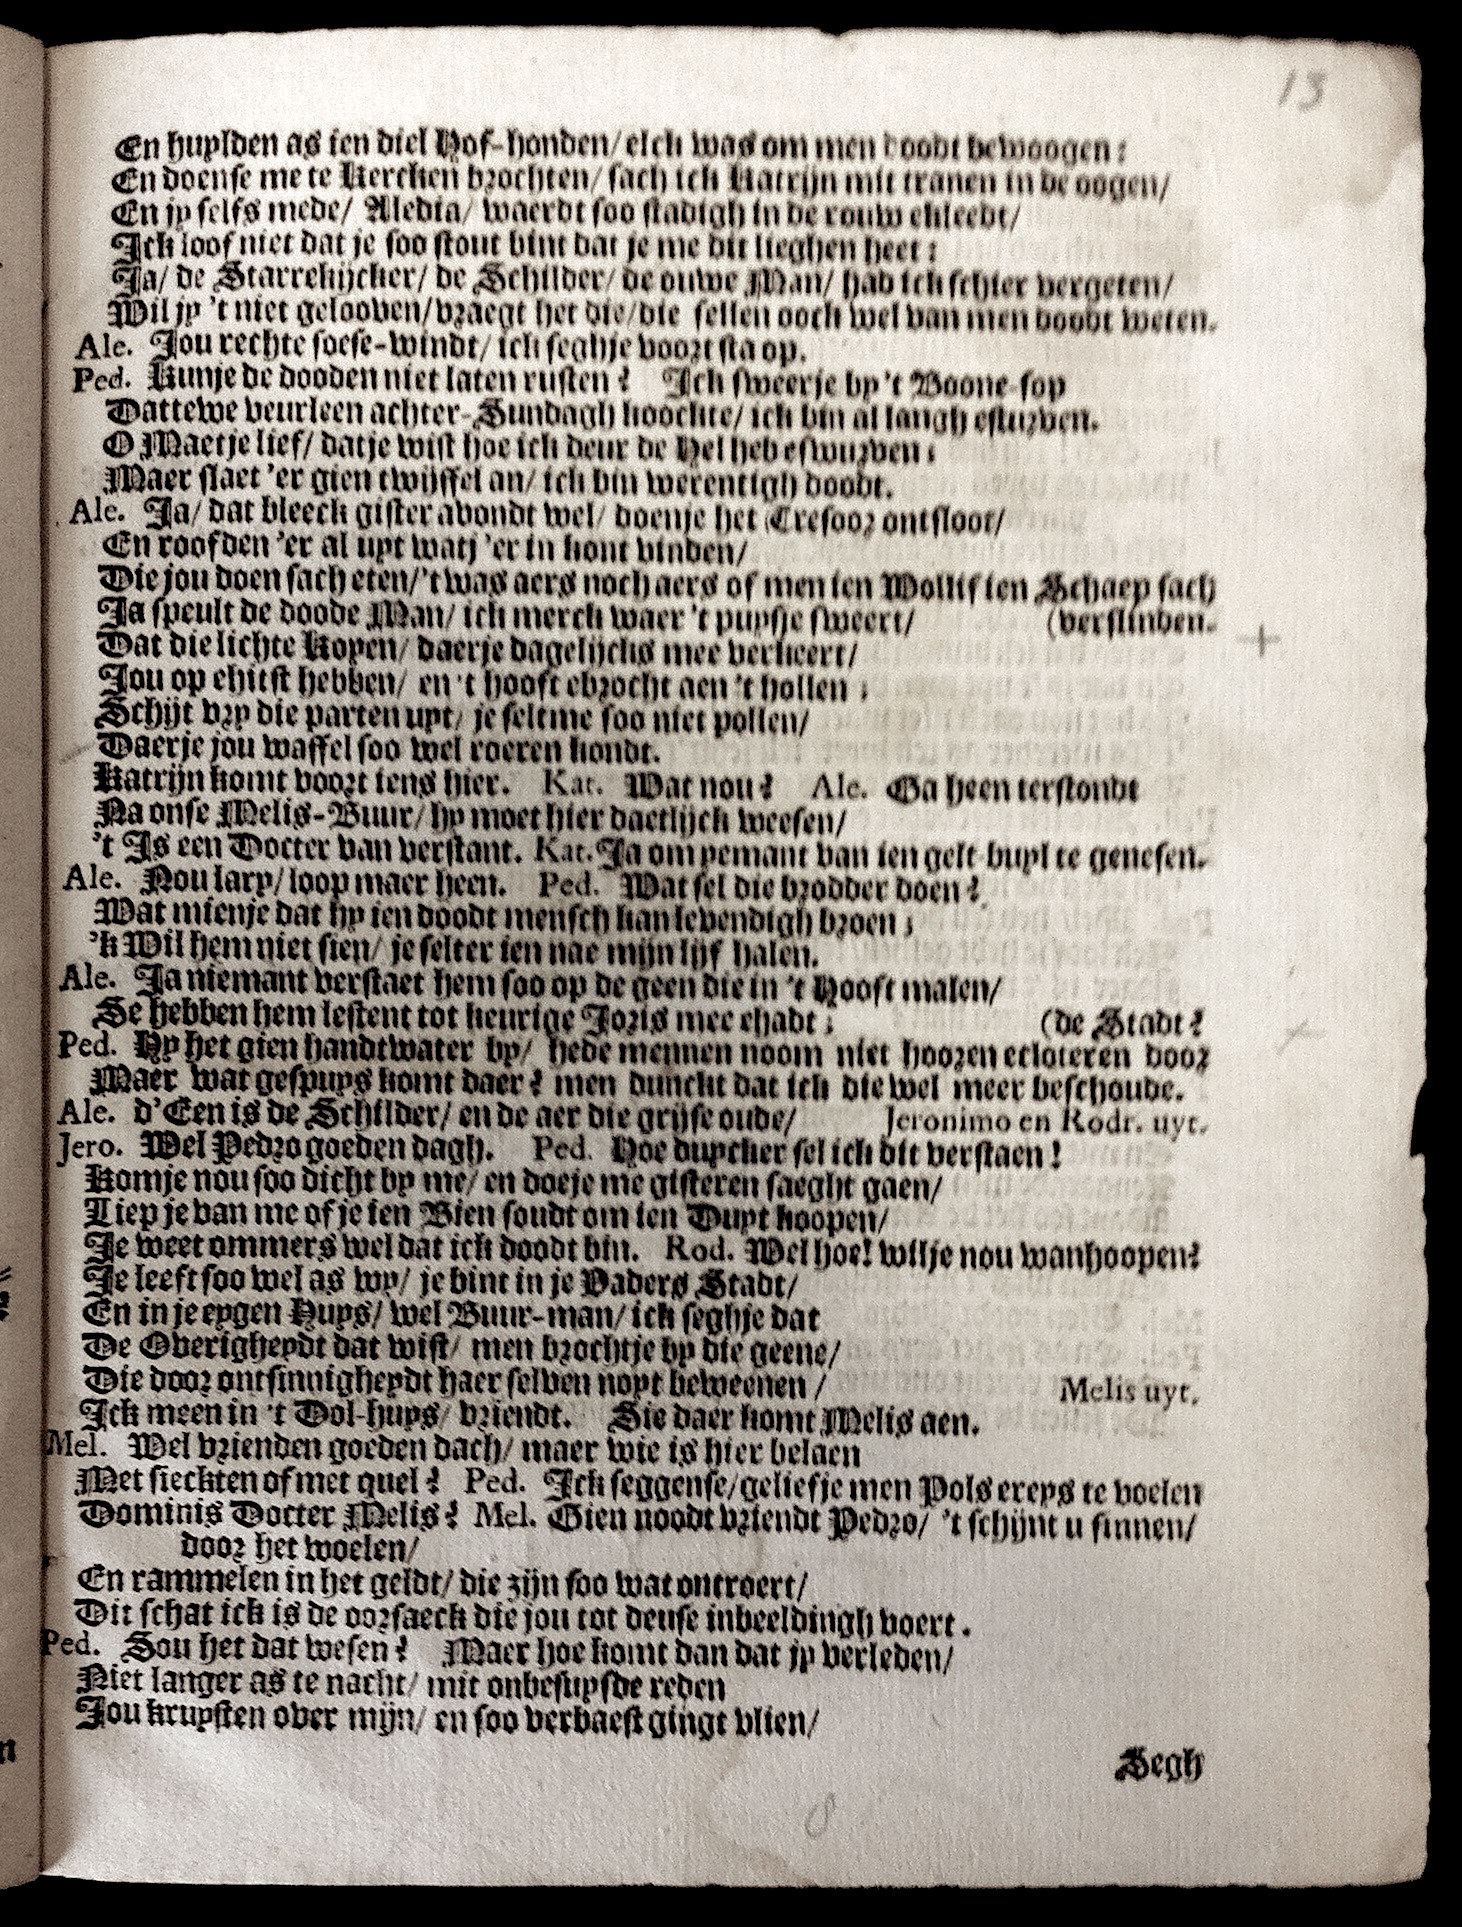 13
En huylden as ien diel Hof-honden/ elck was om men doodt bewoogen:
En doense me te Kercken brochten/ sach ick Katrijn mit tranen in de oogen/
En jy selfs mede/ Aledia/ waerdt soo stadigh in de rouw ekleedt/
Ick loof niet dat je soo stout bint dat je me dit lieghen heet:
Ja/ de Starrekijcker/ de Schilder/ de ouwe Man/ had ick schier vergeten/
Wil jy 't niet gelooven/ vraegt het die/ die sellen oock wel van men doodt weten.
Ale. Jou rechte soese-windt/ ick seghje voort sta op.
Ped. Kunje de dooden niet laten rusten? Ick sweerje by 't Boone-sop
Dattewe veurleen achter-Sundagh koockte/ ick bin al langh esturven.
O Maetje lief/ datje wist hoe ick deur de Hel heb eswurven:
Maer slaet 'er gien twijffel an/ ick bin werentigh doodt.
Ale. Ja/ dat bleeck gister avondt wel/ doenje het Tresoor ontsloot/
En roofden 'er al uyt watj 'er in kont vinden/
Die jou doen sach eten/ 't was aers noch aers of men ien Wollif ien Schaep sach
Ja speult de doode Man/ ick merck waer 't puysje sweert/ (verslinden.
Dat die lichte Kopen/ daerje dagelijcks mee verkeert/
Jou op ehitst hebben/ en 't hooft ebrocht aen 't hollen:
Schijt vry die parten uyt/ je seltme soo niet pollen/
Daerje jou waffel soo wel roeren kondt.
Katrijn komt voort iens hier. Kat. Wat nou? Ale. Ga heen terstondt
Na onse Melis-Buur/ hy moet hier daetlijck weesen/
't Is een Docter van verstant. Kat. Ja om yemant van ien gelt-buyl te genesen.
Ale. Nou lary/ loop maer heen. Ped. Wat sel die brodder doen?
Wat mienje dat hy ien doodt mensch kan levendigh broen;
'k Wil hem niet sien/ je selter ien nae mijn lijf halen.
Ale. Ja niemant verstaet hem soo op de geen die in 't Hooft malen/
Se hebben hem lestent tot keurige Joris mee ehadt; (de Stadt?
Ped. Hy het gien handtwater by/ hede mennen noom niet hooren etloteren door
Maer wat gespuys komt daer? men dunckt dat ick die wel meer beschoude.
Ale. d'Een is de Schilder/ en de aer die grijse oude/ Jeronimo en Rodr. uyt.
Jero. Wel Pedro goeden dagh. Ped. Hoe duycker sel ick dit verstaen!
Komje nou soo dicht by me/ en doeje me gisteren saeght gaen/
Liep je van me of je ien Bien soudt om ien Duyt koopen/
Je weet ommers wel dat ick doodt bin. Rod. Wel hoe! wilje nou wanhoopen?
Je leeft soo wel as wy/ je bint in je Vaders Stadt/
En in je eygen Huys/ wel Buur-man/ ick seghje dat
De Overigheydt dat wist/ men brochtje by die geene/
Die door ontsinnigheydt haer selven noyt beweenen/ Melis uyt.
Ick meen in 't Dol-huys/ vriendt. Sie daer komt Melis aen.
Mel. Wel vrienden goeden dach/ maer wie is hier belaen
Met sieckten of met quel? Ped. Ick seggense/ geliefje men Pols ereys te voelen
Dominis Docter Melis? Mel. Gien noodt vriendt Pedro/ 't schijnt u sinnen/
door het woelen/
En rammelen in het geldt/ die zijn soo wat ontroert/
Dit schat ick is de oorsaeck die jou tot deuse inbeeldingh voert.
Ped. Sou het dat wesen? Maer hoe komt dan dat jy verleden/
Niet langer as te nacht/ mit onbesuysde reden
Jou kruysten over mijn/ en soo verbaest gingt vlien/
Segh
8